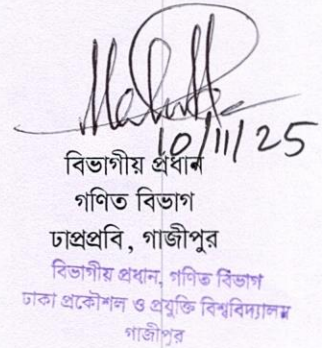 10/11/25
বিভাগীয় প্রধান
গণিত বিভাগ
ঢাপ্রপ্রবি, গাজীপুর
বিভাগীয় প্রধান, গণিত বিভাগ
ঢাকা প্রকৌশল ও প্রযুক্তি বিশ্ববিদ্যালয়
গাজীপুর